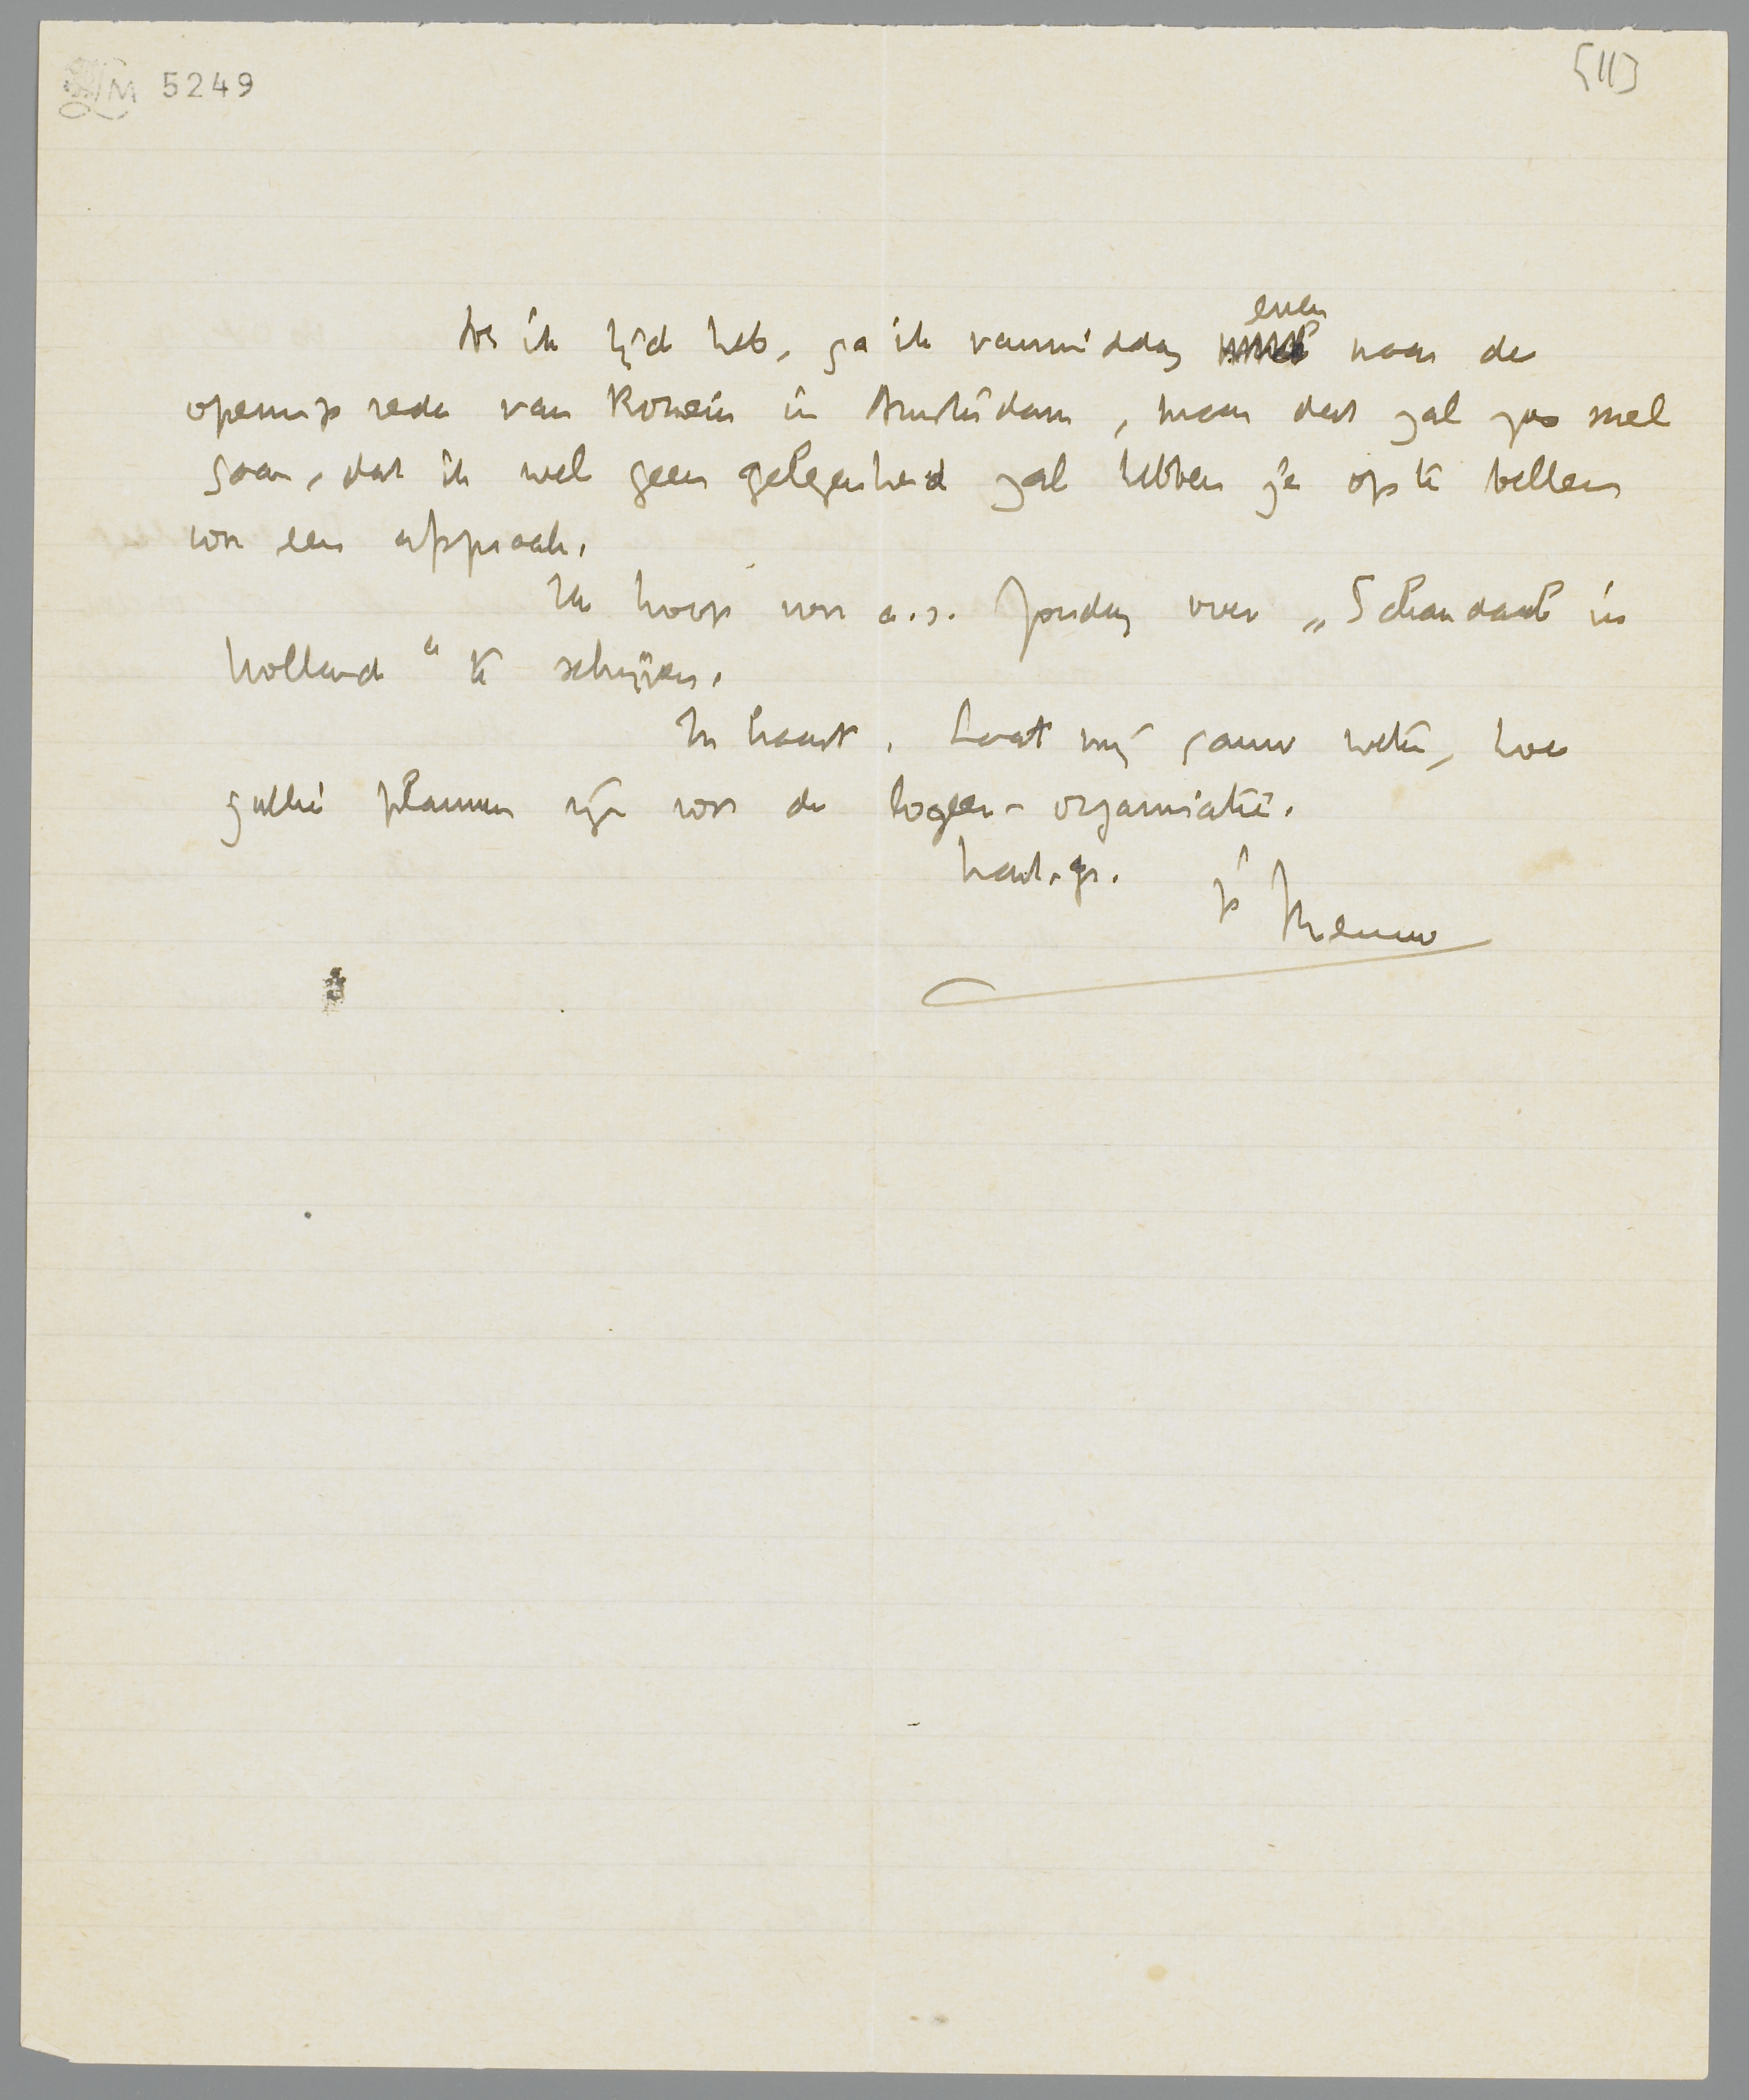 LM 5249
[II]
Als ik tijd heb, ga ik vanmiddag even naar de
openingsrede van Romein in Amsterdam, maar dat zal zoo snel
gaan, dat ik wel geen gelegenheid zal hebben je op te bellen
voor een afspraak.
Ik hoop voor a.s. Zondag over „Schandaal in
Holland" te schrijven.
In haast. Laat mij gauw weten, hoe
jullie plannen zijn voor de logeer-organisatie.
hart. gr. je Menno